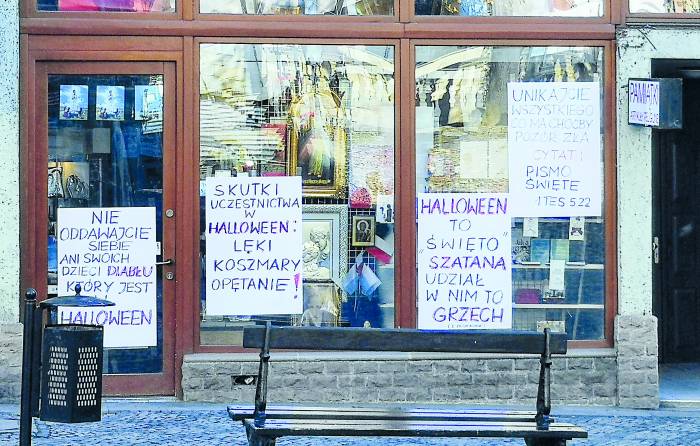 NIE
ODDAWAJCIE
SIEBIE
ANI SWOICH
DZIECI DIABŁU
KTÓRY JEST
HALLOWEEN
SKUTKI
UCZESTNICTWA
W
HALLOWEEN:
LĘKI
KOSZMARY
OPĘTANIE!
HALLOWEEN
TO
"ŚWIĘTO"
SZATANA
UDZIAŁ
W NIM TO
GRZECH
UNIKAJCIE
WSZYSTKIEGO
CO MA CHOĆBY
POZÓR ZŁA
CYTAT:
PISMO
ŚWIĘTE
1 TES 5.22
PAMIĄTKI